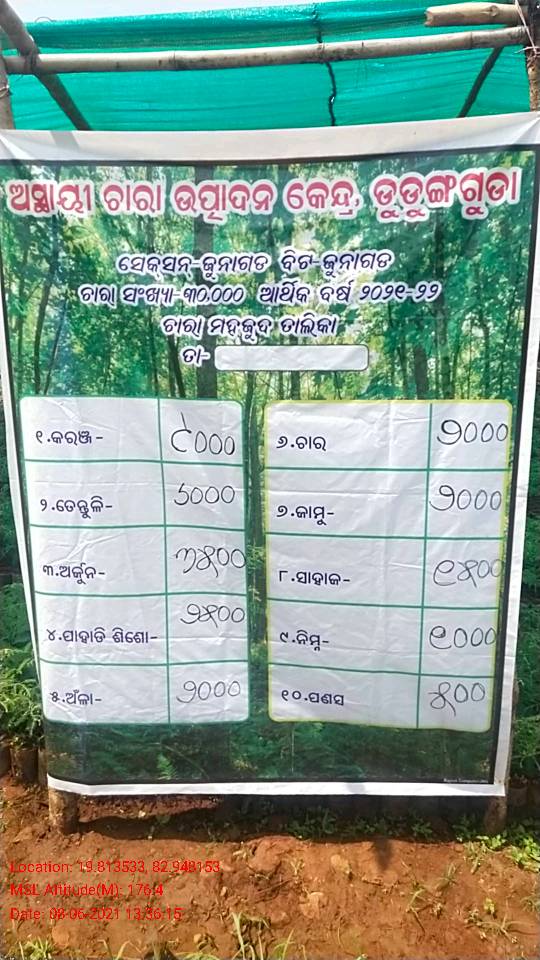 ଅସ୍ଥାୟୀ ଚାରା ଉତ୍ପାଦନ କେନ୍ଦ୍ର, ଡୁଡୁଙ୍ଗଗୁଡା
ସେକ୍ସନ-ଜୁନାଗଡ ବିଟ-ଜୁନାଗଡ
ଚାରା ସଂଖ୍ୟା-୩୦,୦୦୦ ଆର୍ଥିକ ବର୍ଷ ୨୦୨୧-୨୨
ଚାରା ମହଜୁଦ ତାଲିକା
ତା-
୧.କରଞ୍ଜ -
୨.ତେନ୍ତୁଳି-
୩.ଅର୍ଜୁନ- ୩୫୦୦
୪.ପାହାଡି ଶିଶୋ- ୨୫୦୦
୫.ଅଁଳା- ୨୦୦୦
୬.ଚାର ୨୦୦୦
୭.ଜାମୁ- ୨୦୦୦
୮.ସାହାଜ- ୧୫୦୦
୯.ନିମ୍ବ- ୧୦୦୦
୧୦.ପଣସ ୫୦୦
Location: 19.813533, 82.948153
MSL Altitude(M): 176.4
Date: 08-06-2021 13:36:15